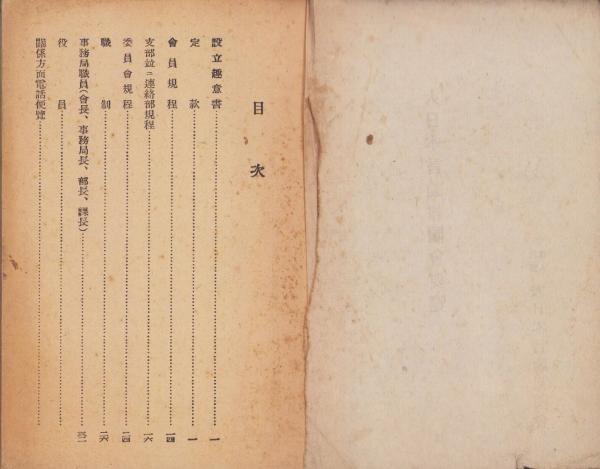 目次
設立趣意書……………………一
定款……………………一
會員規程……………………一四
支部並ニ連絡部規程……………………一六
委員會規程……………………二四
職制……………………二六
事務局職員(會長、事務局長、部長、課長)……………………三一
役員……………………
關係方面電話便覽……………………